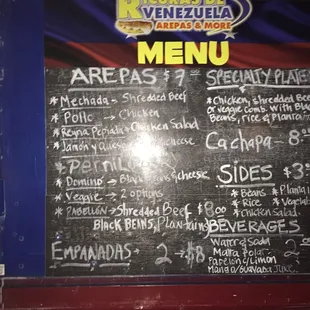 RICURAS DE
VENEZUELA
AREPAS & MORE
MENU
AREPAS $7
* Mechada - Shredded Beef
* Pollo - Chicken
* Reyna Pepiada - Chicken Salad
* Jamón y Queso
cheese
* Pernil
* Domino - Black & cheese
* Veggie - 2 options
* PABELLÓN - Shredded Beef $8.00
BLACK BEANS, Plantains
EMPANADAS - 2 - $8
SPECIALTY PLATE
* Chicken, shredded Beef
or veggie comb. With Black
Beans, rice & Plantain
Cachapa - 8.00
SIDES $3
* Beans * Planta
* Rice * Vegetab
* Chicken Salad
BEVERAGES
Water & Soda
Malta Polar - 2.00
Papelon c/Limon
Mango/Guayaba